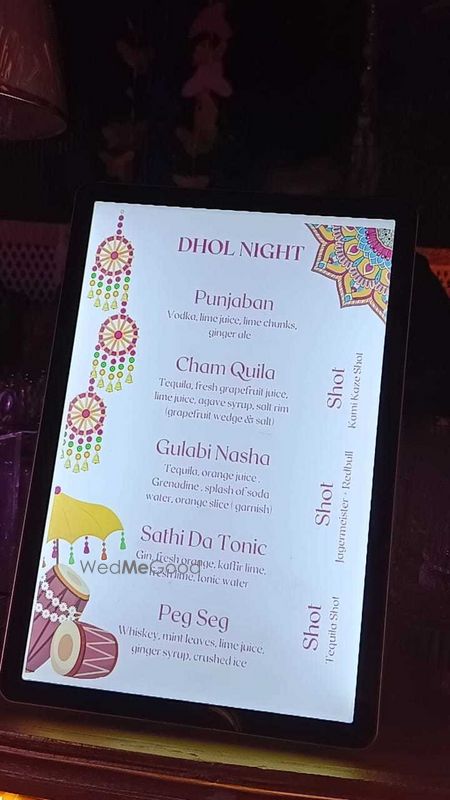 DHOL NIGHT
Punjaban
Vodka, lime juice, lime chunks,
ginger ale
Cham Quila
Tequila, fresh grapefruit juice,
lime juice, agave syrup, salt rim
(grapefruit wedge & salt)
Gulabi Nasha
Tequila, orange juice ,
Grenadine , splash of soda
water, orange slice ( garnish)
Sathi Da Tonic
Gin, fresh orange, kaffir lime,
fresh lime, tonic water
Peg Seg
Whiskey, mint leaves, lime juice,
ginger syrup, crushed ice
Shot
Kami Kaze Shot
Shot
Jagermeister + Redbull
Shot
Tequila Shot
WedMeGood